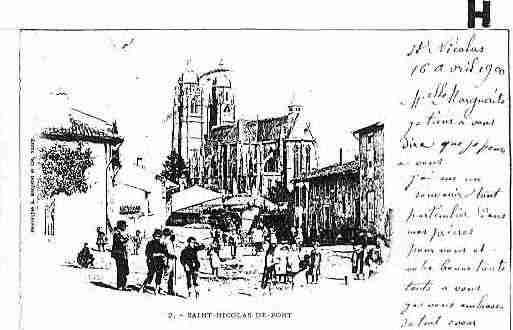 H
St Nicolas
16 avril 1900
Mlle Marguerite
je tiens à vous
dire que je pense
à vous
j'ai eu un
souvenir tout
particulier dans
mes prières
pour vous et
votre bonne tante
tante à vous
qui vous embrasse
de tout coeur
2. - SAINT-NICOLAS-DE-PORT